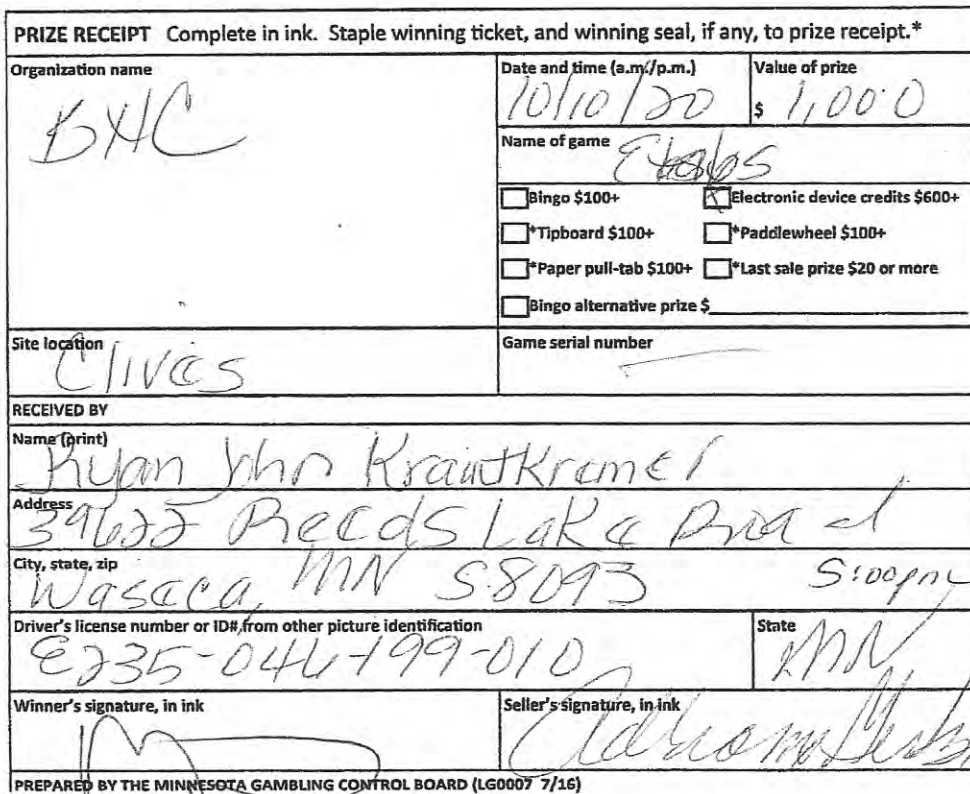 PRIZE RECEIPT Complete in ink. Staple winning ticket, and winning seal, if any, to prize receipt.*
Organization name
BHC
Date and time (a.m./p.m.)
10/10/20
Value of prize
$ 1,000
Name of game
Etabs
Bingo $100+
Electronic device credits $600+
*Tipboard $100+
*Paddlewheel $100+
*Paper pull-tab $100+
*Last sale prize $20 or more
Bingo alternative prize $
Site location
Clives
Game serial number
RECEIVED BY
Name (print)
Ryan John Krautkremer
Address
39622 Reeds Lake Road
City, state, zip
Wasaca, MN 58093 5:00pm
Driver's license number or ID# from other picture identification
E235-046-199-010
State
MN
Winner's signature, in ink
Seller's signature, in ink
PREPARED BY THE MINNESOTA GAMBLING CONTROL BOARD (LG0007 7/16)